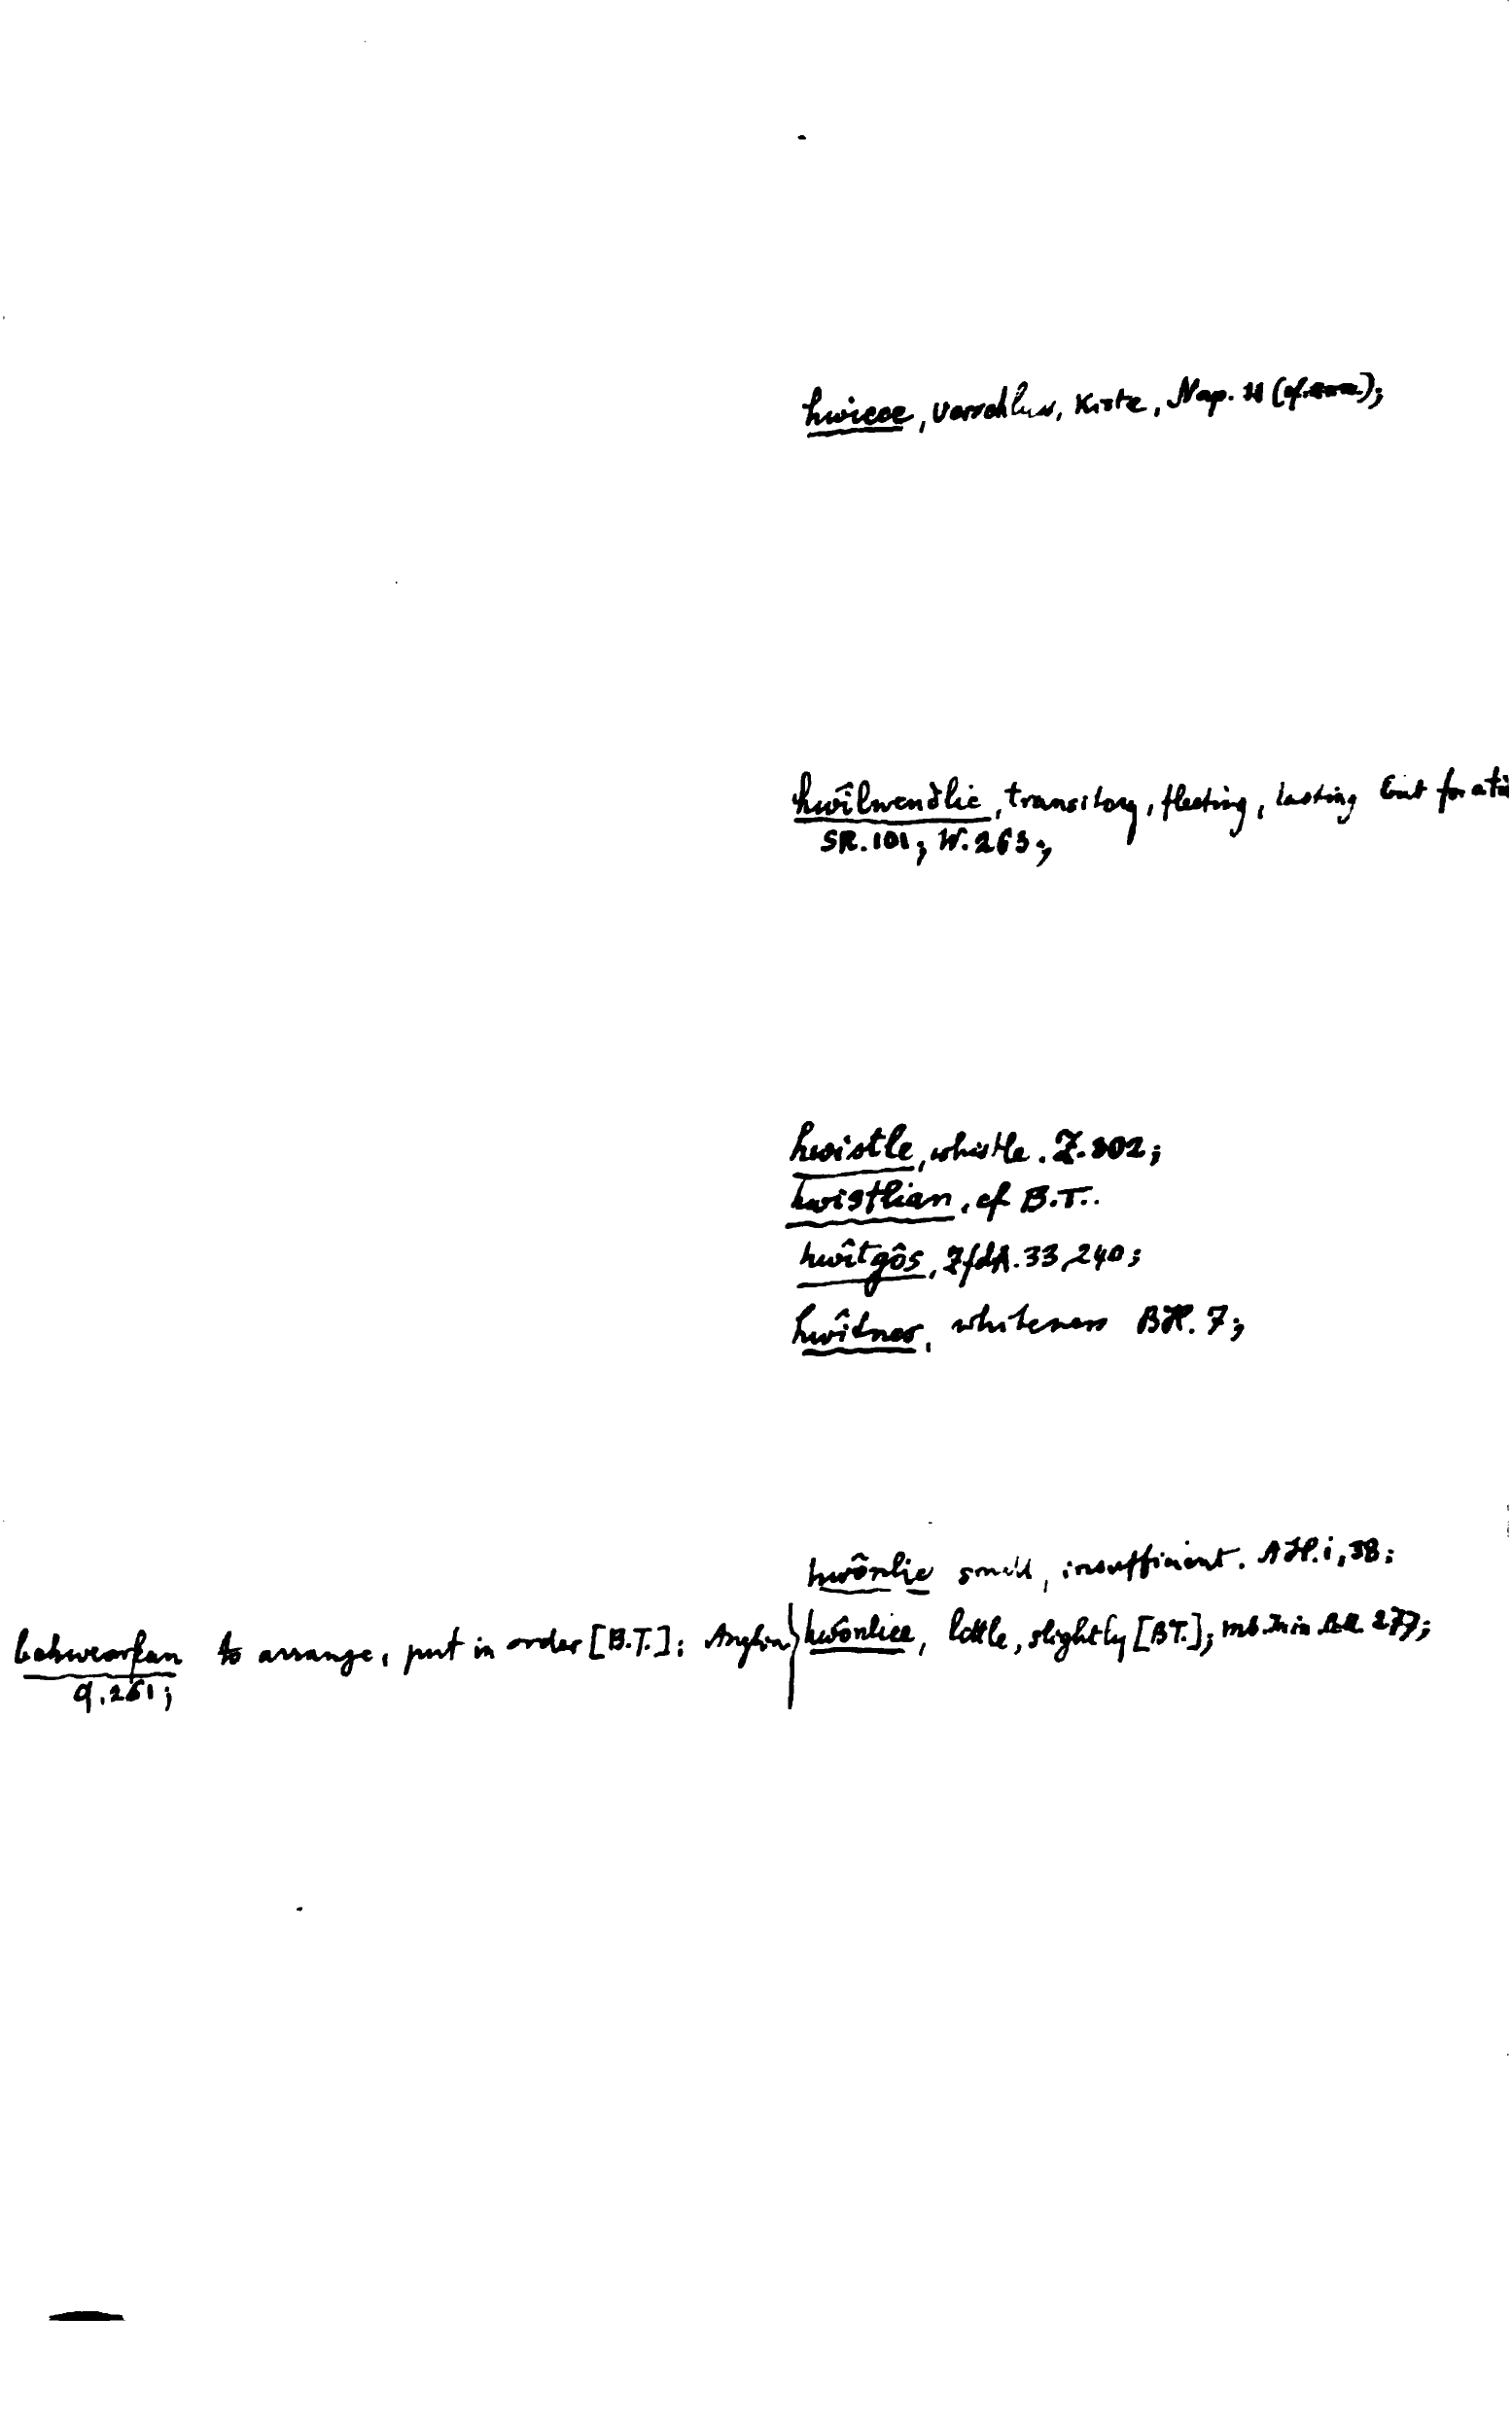 hwicce, Verschluss, Kiste, Nap. 11
hwîlwendlic, transitory, fleeting, lasting but for a ti
SR. 101; W. 263;
hwistle, whistle. Z. 302;
hwistlian, cf B.T..
hwîtgôs, ZfdA. 33, 240;
hwîtnes, whiteness BH. 7;
hwônlic small, insufficient. AH. i, 38;
behwearfan to arrange, put in order [B.T.]; Anglia
9.261;
hwônlice, little, slightly [BT.];